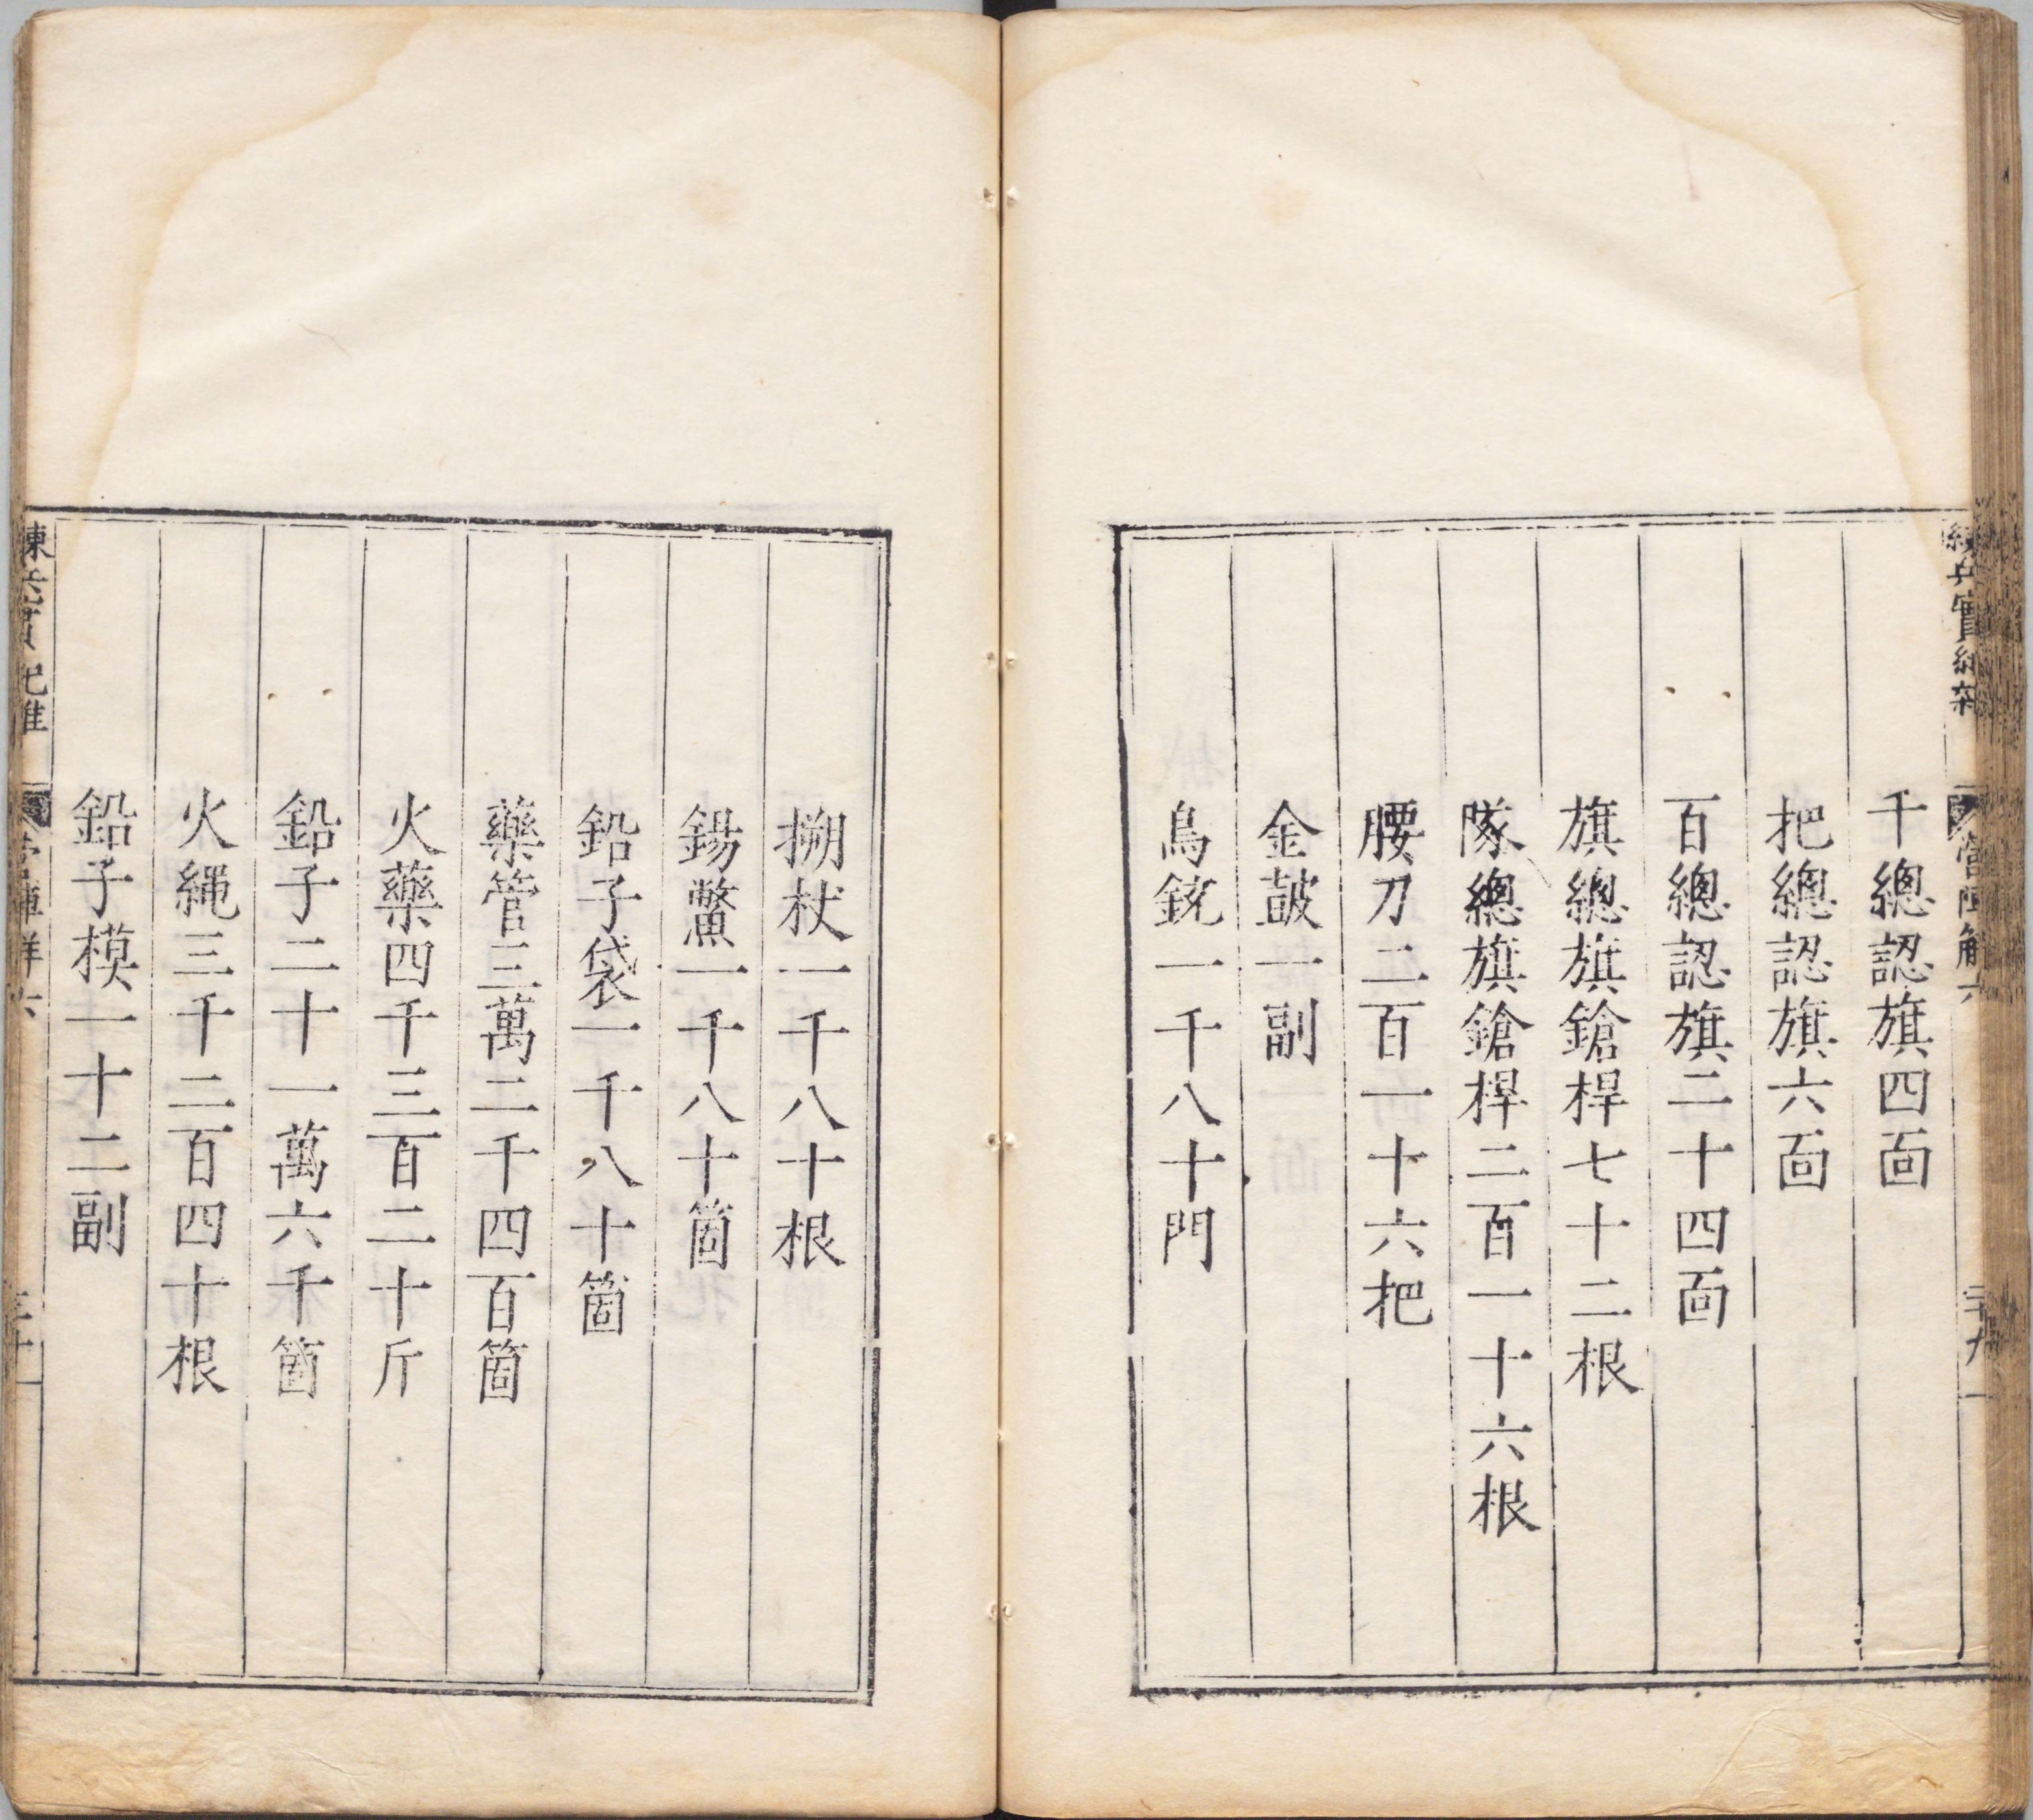 練兵實紀雜
營陣觧六
三十九
千總認旗四面
把總認旗六面
百總認旗二十四面
旗總旗鎗桿七十二根
隊總旗鎗桿二百一十六根
腰刀二百一十六把
金鼓一副
鳥銃一千八十門
搠杖一千八十根
錫鱉一千八十箇
鉛子袋一千八十箇
藥管三萬二千四百箇
火藥四千三百二十斤
鉛子二十一萬六千箇
火繩三千二百四十根
鉛子模一十二副